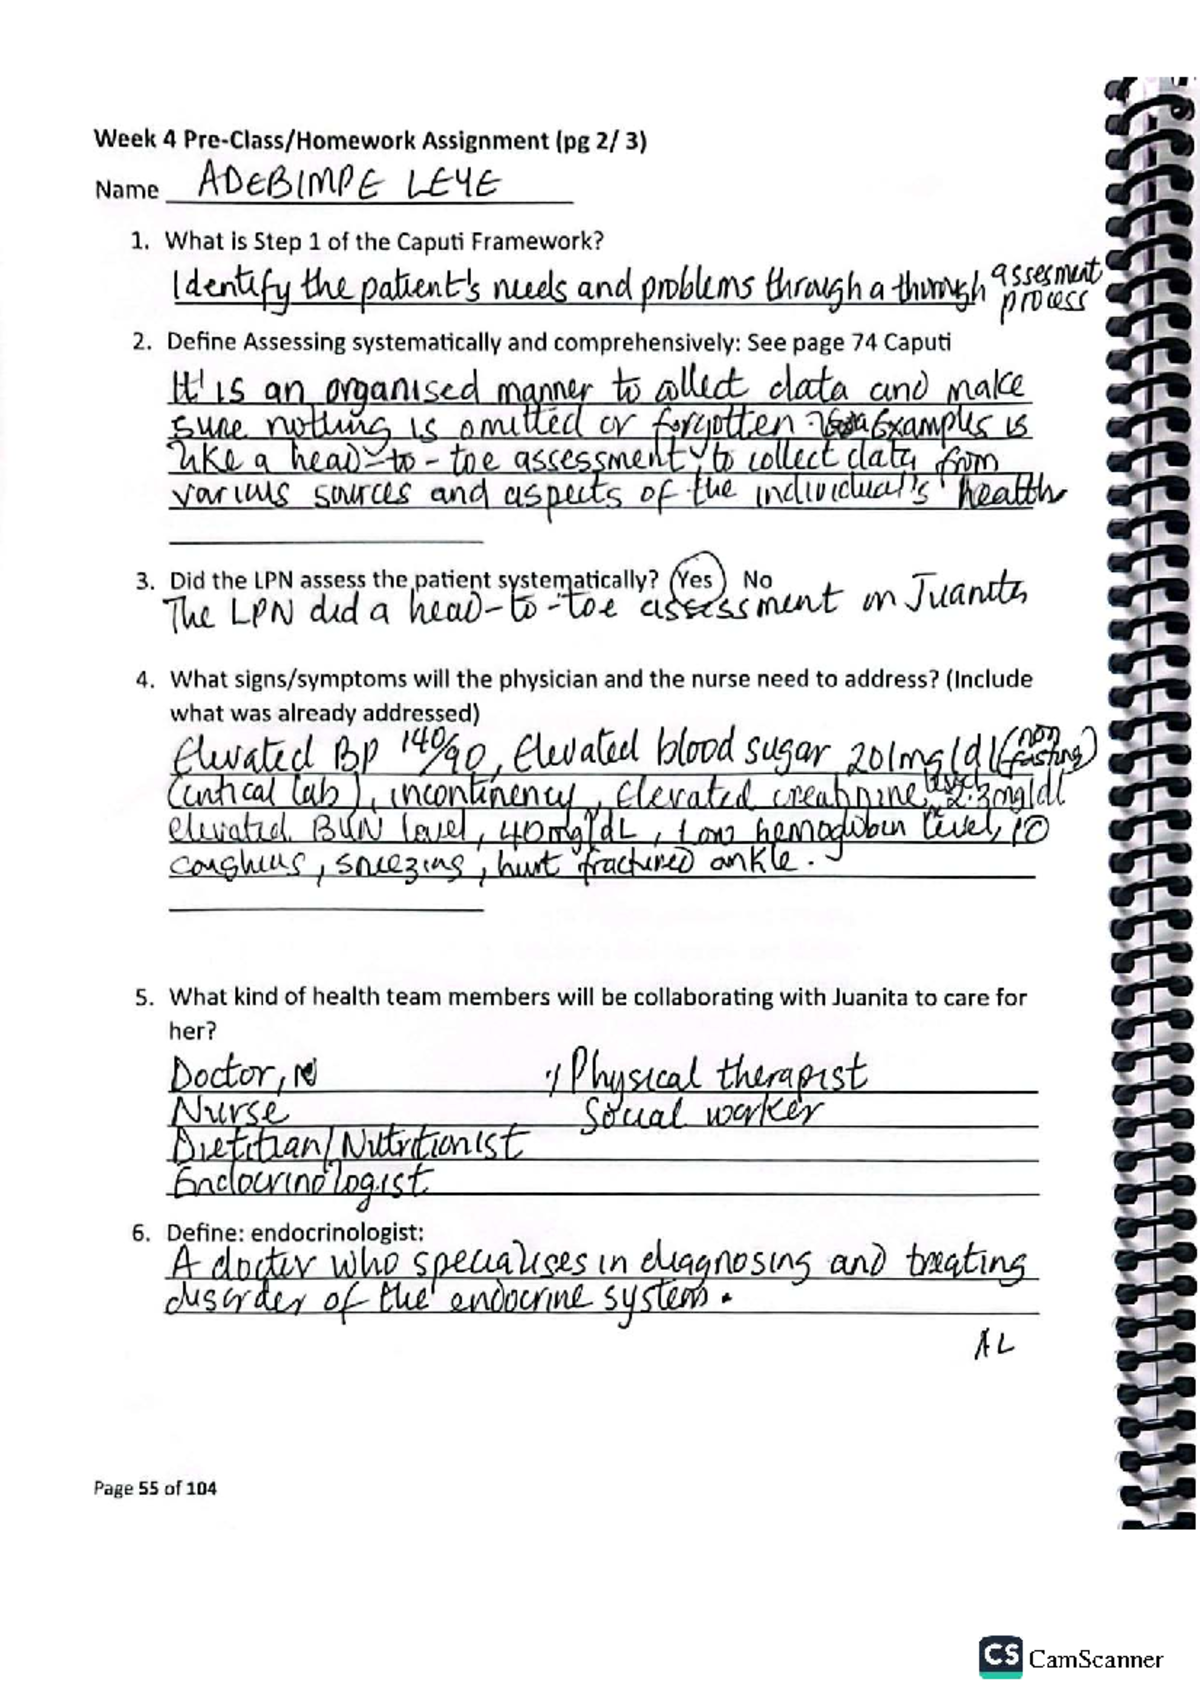 Week 4 Pre-Class/Homework Assignment (pg 2/ 3)
Name ADEBIMPE LEYE
1. What is Step 1 of the Caputi Framework?
Identify the patient's needs and problems through a through assesment process
2. Define Assessing systematically and comprehensively: See page 74 Caputi
It is an organised manner to collect data and make
sure nothing is omitted or forgotten. Examples is
like a head-to-toe assessment, to collect data from
various sources and aspects of the individual's health
3. Did the LPN assess the patient systematically? Yes No
The LPN did a head-to-toe assessment on Juanita
4. What signs/symptoms will the physician and the nurse need to address? (Include
what was already addressed)
Elevated BP 140/90, Elevated blood sugar 201mg/dl (non fasting)
(critical lab), incontinency, elevated creatinine level 2.3mg/dl
elevated BUN level, 40mg/dL, Low hemoglobin level, 10
coughing, sneezing, hurt fractured ankle.
5. What kind of health team members will be collaborating with Juanita to care for
her?
Doctor, Physical therapist
Nurse Social worker
Dietitian/Nutritionist
Endocrinologist
6. Define: endocrinologist:
A docter who specialises in diagnosing and treating
disorder of the endocrine system.
AL
Page 55 of 104
CS CamScanner